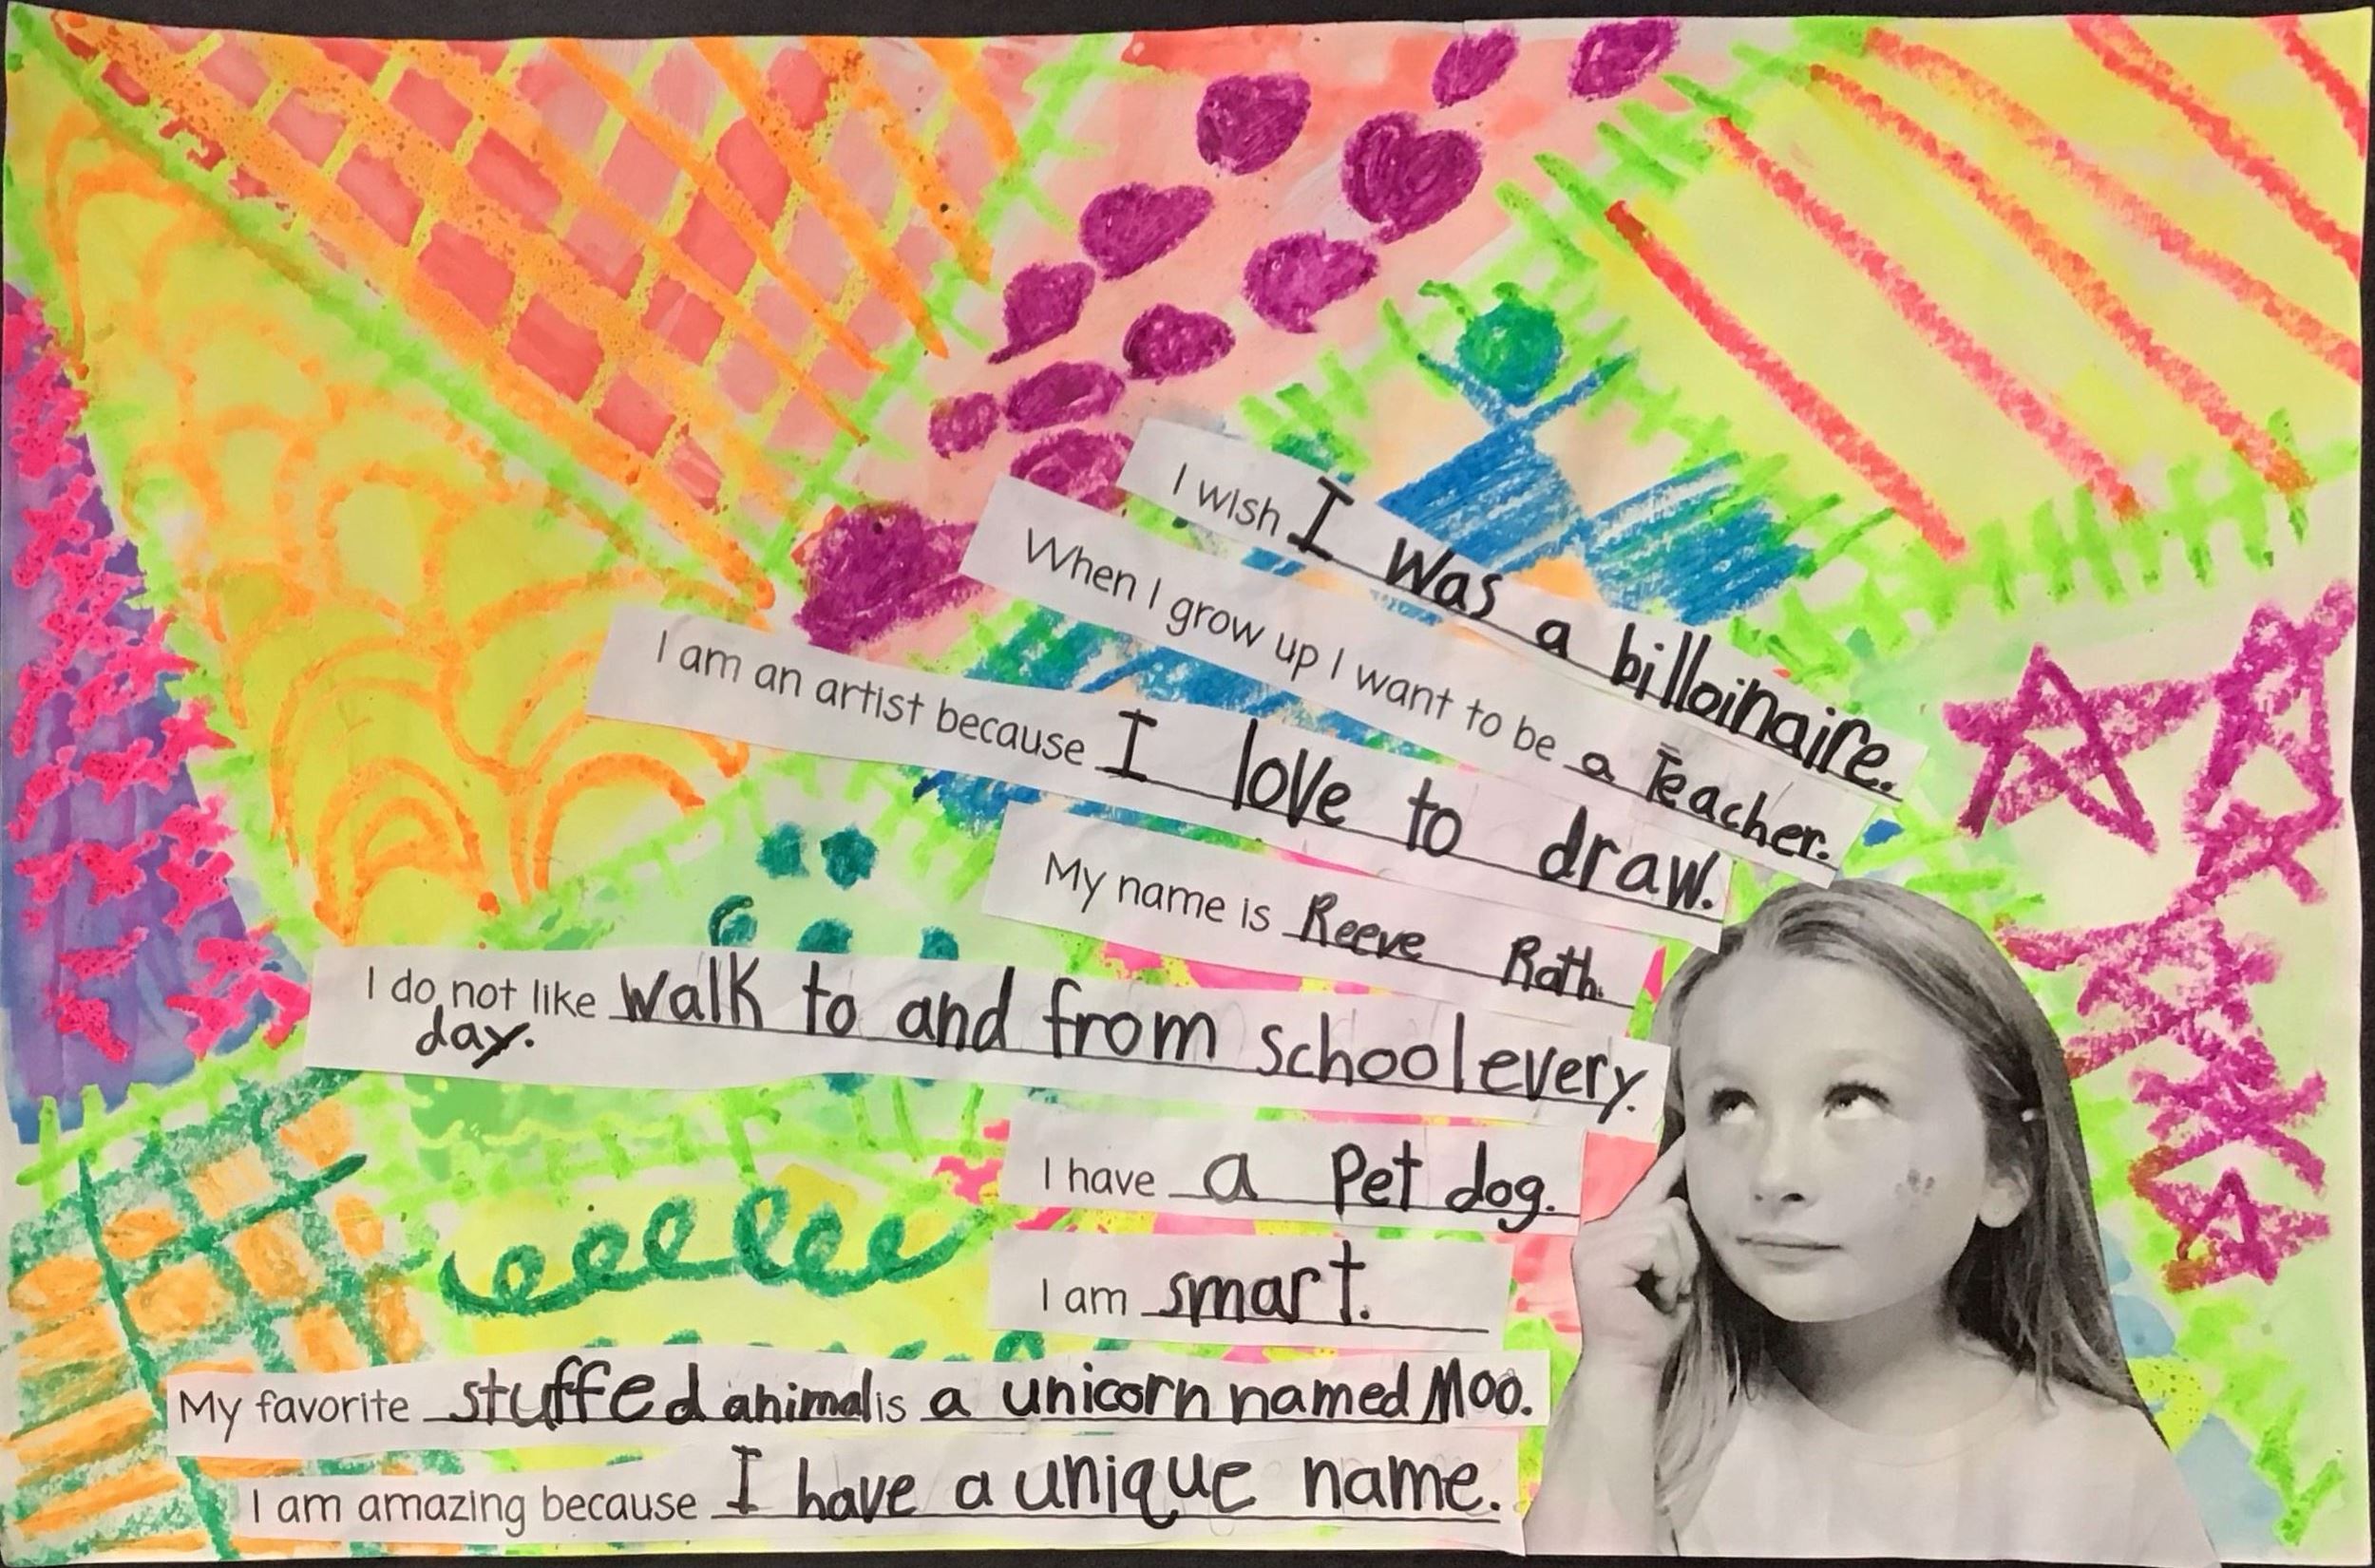 I wish I was a billoinaire.
When I grow up I want to be a Teacher.
I am an artist because I love to draw.
My name is Reeve Rath.
I do not like walk to and from school every.
day.
I have a pet dog.
I am smart.
My favorite stuffed animal is a unicorn named Moo.
I am amazing because I have a unique name.